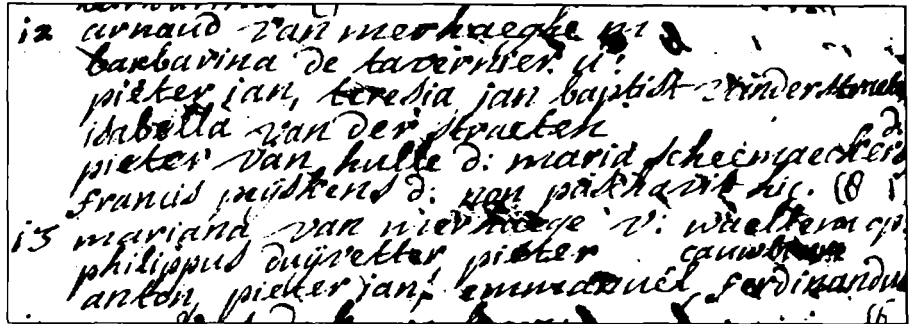 12 arnaud van merhaeghe m
barbarina de tavernier u:
pieter jan, teresia jan baptist vanderstraeten
isabella van der straeten
pieter van hulle d: maria scheemaeckers
francis d: non paskhavit hic. (8
13 mariana van merhaege v: waeltem op
philippus duyvetter pieter
anton, pieter jan, emmanuel ferdinandus